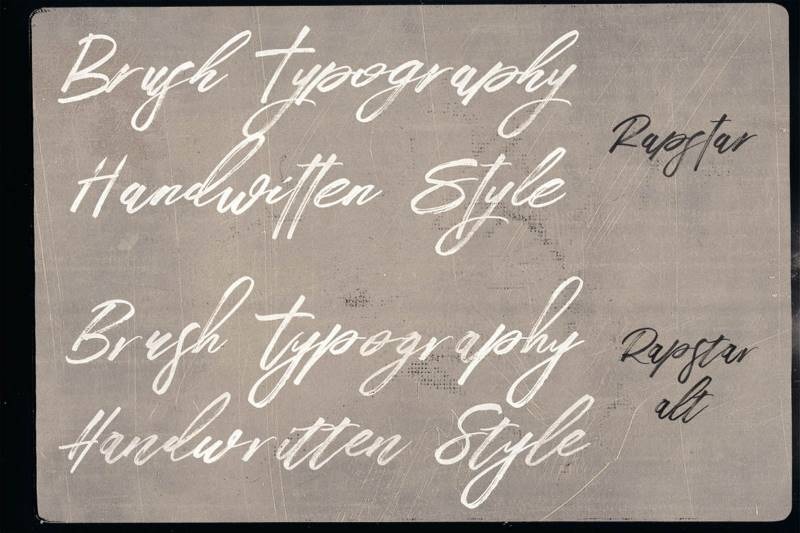 Brush Typography
Handwitten Style
Rapstar
Brush typography
Handwritten Style
Rapstar
alt